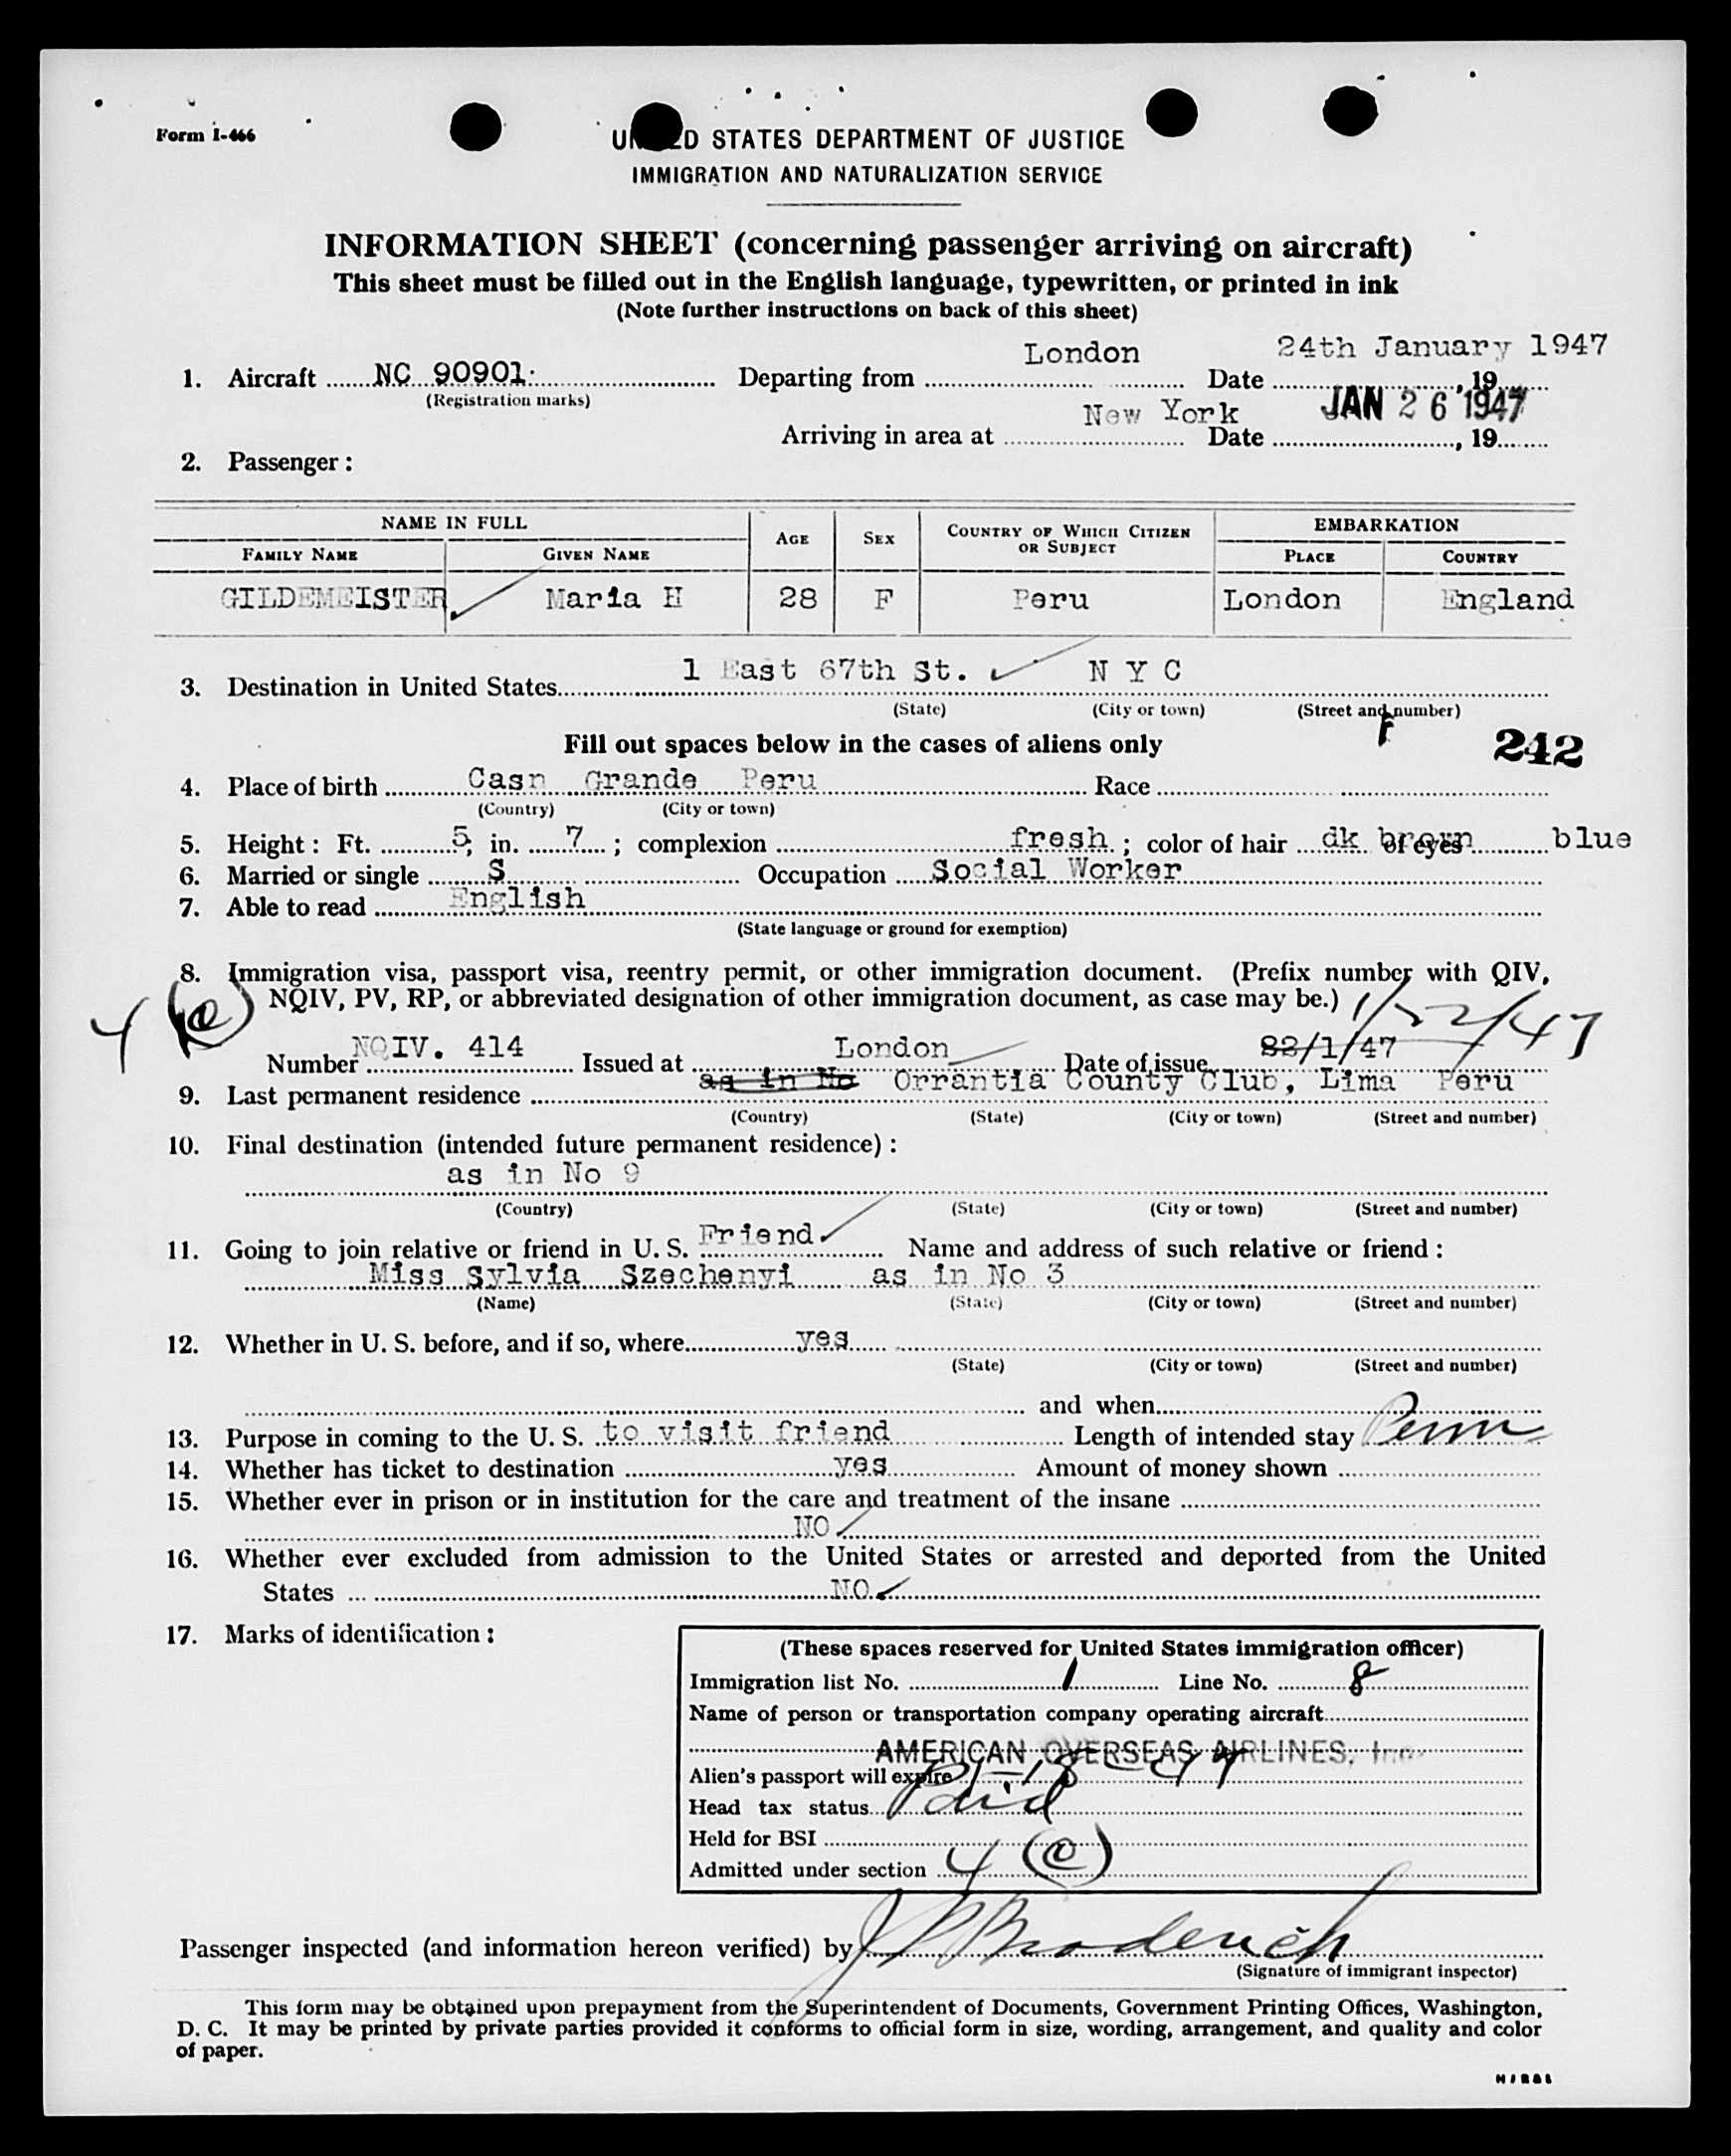 Form I-466
UNITED STATES DEPARTMENT OF JUSTICE
IMMIGRATION AND NATURALIZATION SERVICE
INFORMATION SHEET (concerning passenger arriving on aircraft)
This sheet must be filled out in the English language, typewritten, or printed in ink
(Note further instructions on back of this sheet)
1. Aircraft NC 90901 Departing from London Date 24th January 1947, 19
(Registration marks)
Arriving in area at New York Date JAN 26 1947, 19
2. Passenger:
NAME IN FULL AGE SEX COUNTRY OF WHICH CITIZEN OR SUBJECT EMBARKATION
FAMILY NAME GIVEN NAME PLACE COUNTRY
GILDEMEISTER Maria H 28 F Peru London England
3. Destination in United States 1 East 67th St. N Y C
(State) (City or town) (Street and number)
Fill out spaces below in the cases of aliens only 242
4. Place of birth Casn Grande Peru Race
(Country) (City or town)
5. Height: Ft. 5; in. 7; complexion fresh; color of hair dk brown of eyes blue
6. Married or single S Occupation Social Worker
7. Able to read English
(State language or ground for exemption)
8. Immigration visa, passport visa, reentry permit, or other immigration document. (Prefix number with QIV,
4 (e) NQIV, PV, RP, or abbreviated designation of other immigration document, as case may be.) 1/22/47
Number NQIV. 414 Issued at London Date of issue 22/1/47
9. Last permanent residence as in No Orrantia County Club, Lima Peru
(Country) (State) (City or town) (Street and number)
10. Final destination (intended future permanent residence):
as in No 9
(Country) (State) (City or town) (Street and number)
11. Going to join relative or friend in U. S. Friend Name and address of such relative or friend:
Miss Sylvia Szechenyi as in No 3
(Name) (State) (City or town) (Street and number)
12. Whether in U. S. before, and if so, where yes
(State) (City or town) (Street and number)
and when
13. Purpose in coming to the U. S. to visit friend Length of intended stay Perm
14. Whether has ticket to destination yes Amount of money shown
15. Whether ever in prison or in institution for the care and treatment of the insane
NO
16. Whether ever excluded from admission to the United States or arrested and deported from the United
States NO
17. Marks of identification:
(These spaces reserved for United States immigration officer)
Immigration list No. 1 Line No. 8
Name of person or transportation company operating aircraft
AMERICAN OVERSEAS AIRLINES, Inc.
Alien's passport will expire
Head tax status Paid
Held for BSI
Admitted under section 4 (e)
Passenger inspected (and information hereon verified) by
(Signature of immigrant inspector)
This form may be obtained upon prepayment from the Superintendent of Documents, Government Printing Offices, Washington,
D. C. It may be printed by private parties provided it conforms to official form in size, wording, arrangement, and quality and color
of paper.